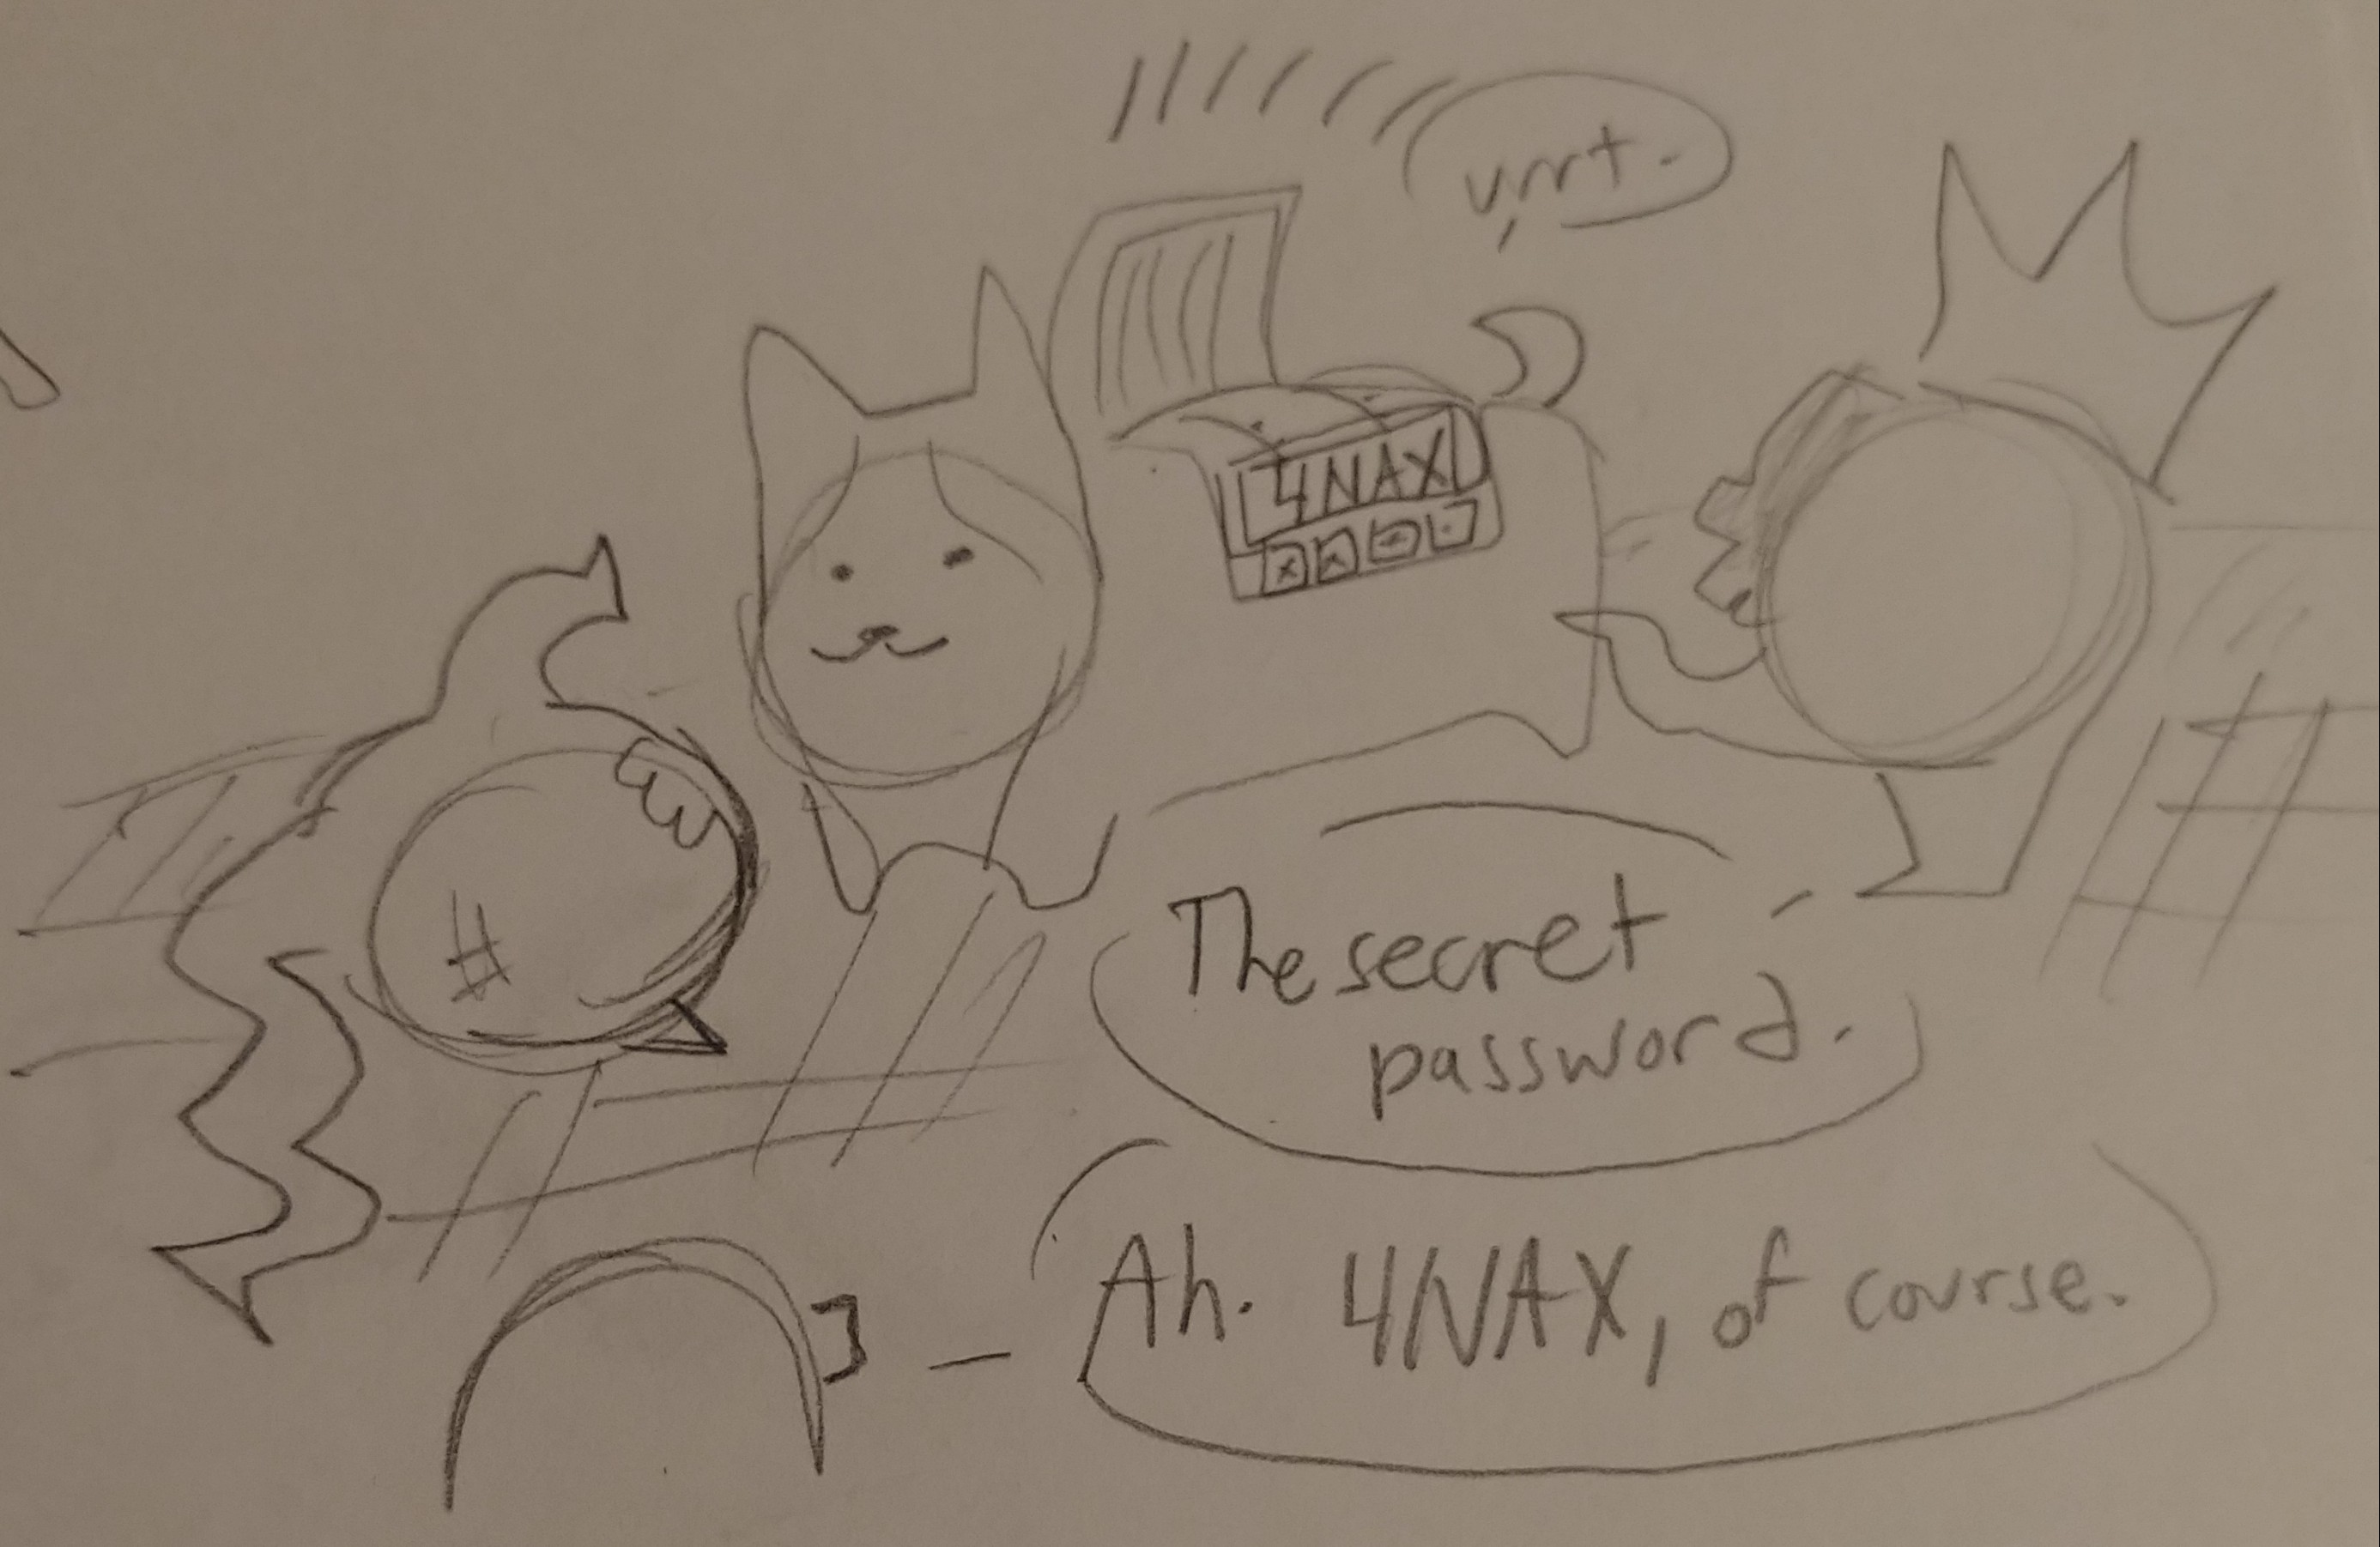 vrrt.
4NAX
The secret
password.
Ah. 4NAX, of course.